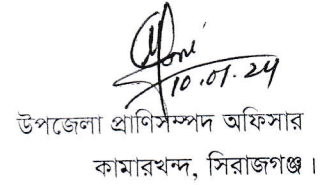 10.01.24
উপজেলা প্রাণিসম্পদ অফিসার
কামারখন্দ, সিরাজগঞ্জ।